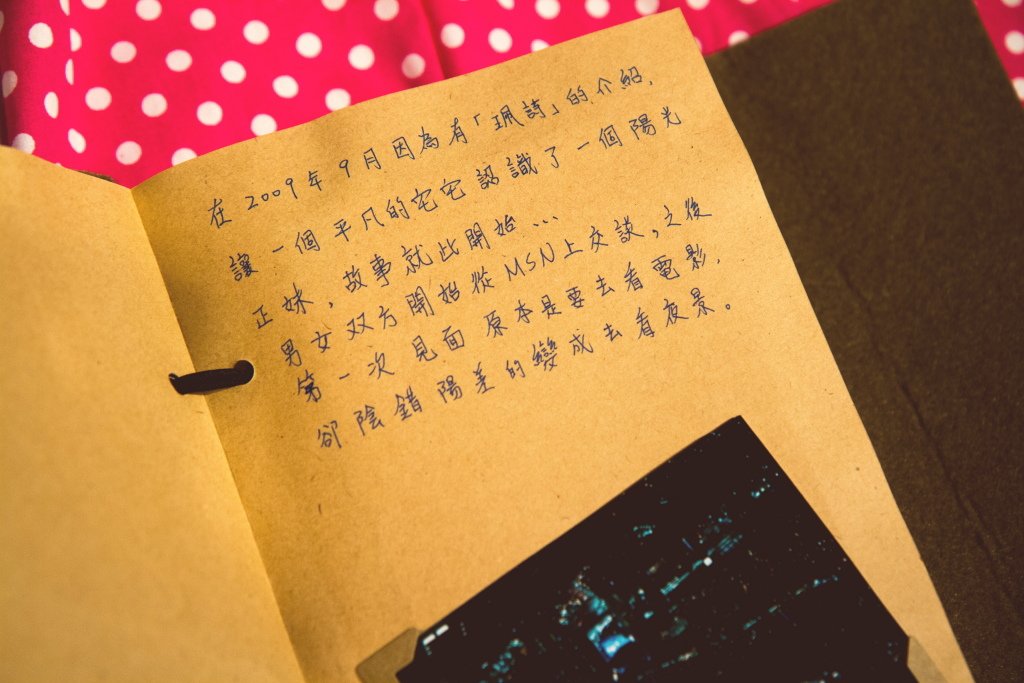 在 2009年 9月因為有「珮詩」的介紹,
讓一個平凡的宅宅認識了一個陽光
正妹,故事就此開始...
男女双方開始從MSN上交談,之後
第一次見面原本是要去看電影,
卻陰錯陽差的變成去看夜景。